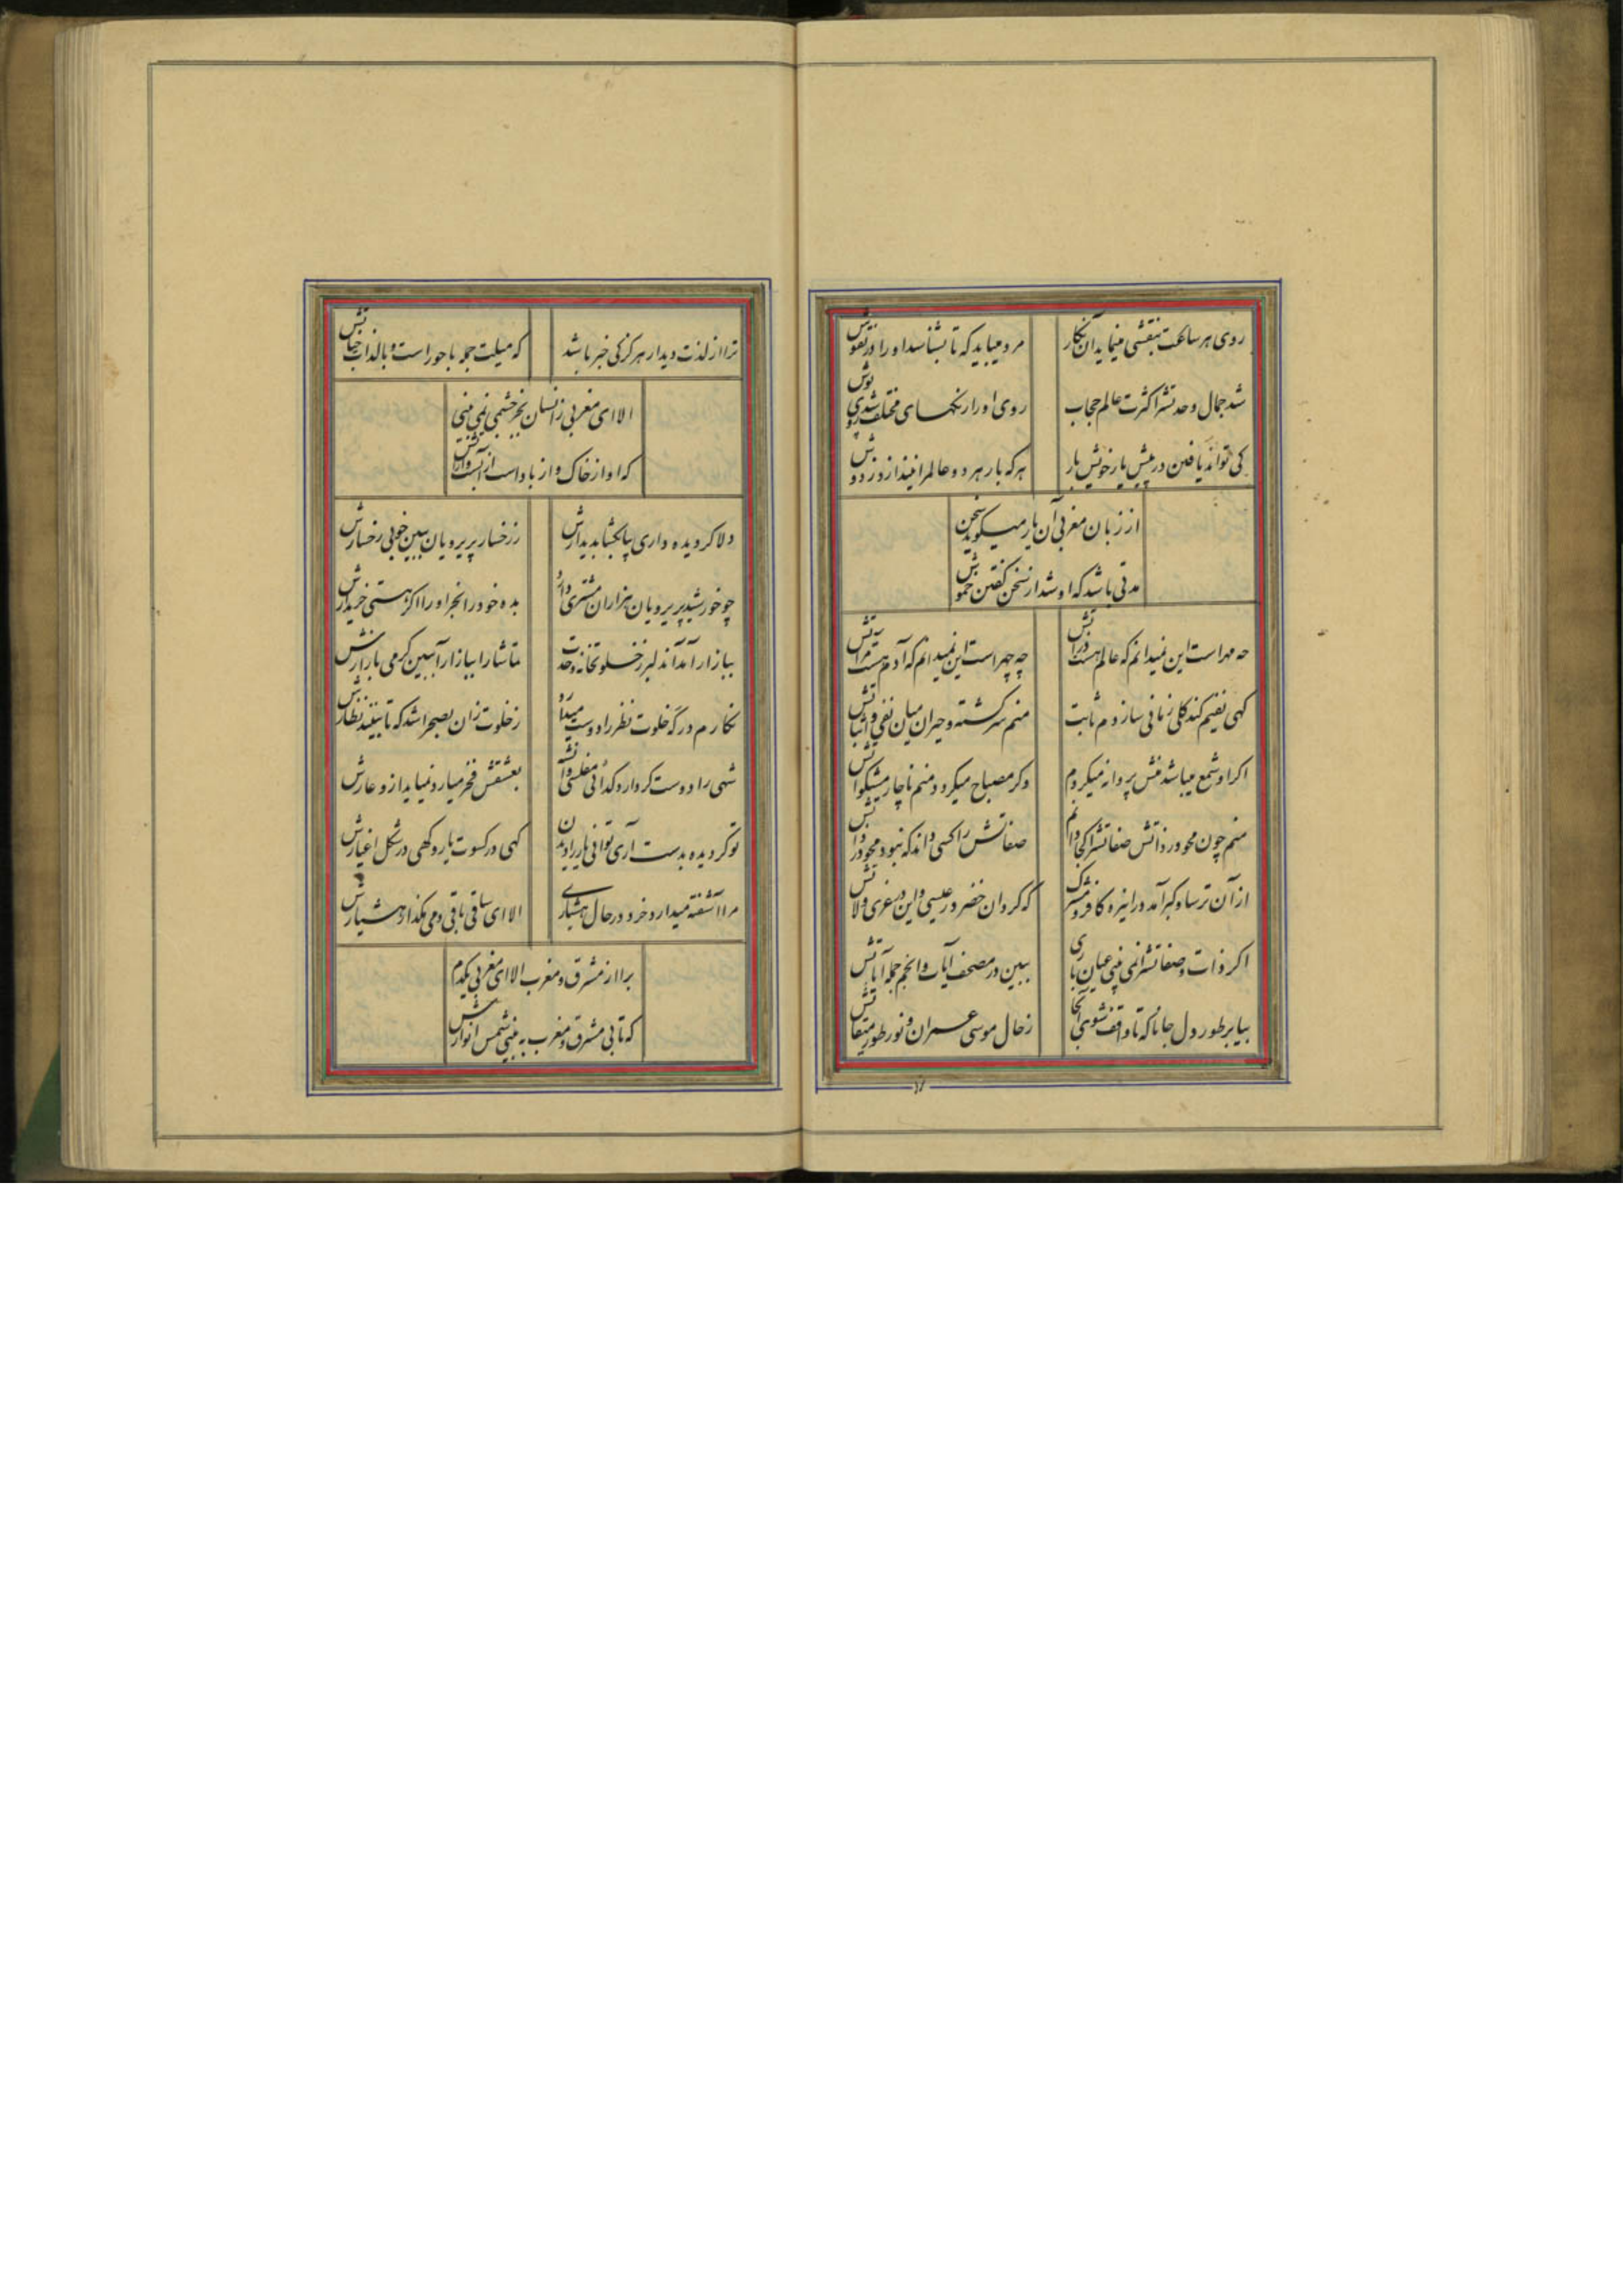 روی هر ساعت بنقشی مینماید آن نکار
مرد میباید که تا بشناسد او را در نقوش
شد جمال وحدتش را کثرت عالم حجاب
روی او را رنکهای مختلف شد روی پوش
کی تواند یافتن در پیش یار خویش بار
هر که بار هر دو عالم را نیندازد ز دوش
از زبان مغربی آن یار میکوید سخن
مدتی باشد که او شد از سخن کفتن خموش
چه مهر است این نمیدانم که عالم هست ذراتش
چه چهر است این نمیدانم که آدم هست مرآتش
کهی نفیم کند کلی زمانی سازدم ثابت
منم سرکشته و حیران میان نفی و اثباتش
اکر او شمع میباشد منش پروانه میکردم
وکر مصباح میکردد منم ناچار مشکواتش
منم چون محو در ذاتش صفاتش را کجا دانم
صفاتش را کسی داند که نبود محو در ذاتش
از آن ترسا و کبر آمد در این ره کافر و مشرک
که کرد آن خضر در عیسی و این در عزی و لاتش
اکر ذات و صفاتش را نمی بینی عیان باری
ببین در مصحف آیات و انجم جمله آیاتش
بیا بر طور دل جانا که تا واقف شوی آنجا
ز حال موسی عمران و نور طور و میقاتش
ترا از لذت دیدار هرکز کی خبر باشد
که میلت جمله با حور است و با لذات جناتش
الا ای مغربی ز انسان بجز چشمی نمی بینی
که او از خاک و از باد است از آب است و از آتش
دلا کر دیده داری بیا بکشا بدیدارش
ز رخسار پریرویان ببین خوبی رخسارش
چو خورشید پریرویان هزاران مشتری دارد
بده خود را بخر او را اکر هستی خریدارش
ببازار آمد آن دلبر ز خلوتخانه وحدت
تماشا را ببازار آ ببین کرمی بازارش
نکارم در که خلوت نظر را دوست میدارد
ز خلوت زان بصحرا شد که تا بینند نظارش
شهی را دوست کردارد کدائی مفلسی دانش
بعشقش فخر میآرد نمیآید از و عارش
تو کر دیده بدست آری توانی یار را دیدن
کهی در کسوت یار و کهی در شکل اغیارش
مرا آشفته میدارد خرد در حال هشیاری
الا ای ساقی باقی دمی مکذار هشیارش
برا از مشرق و مغرب الا ای مغربی یکدم
که تا بی مشرق و مغرب به بینی شمس انوارش